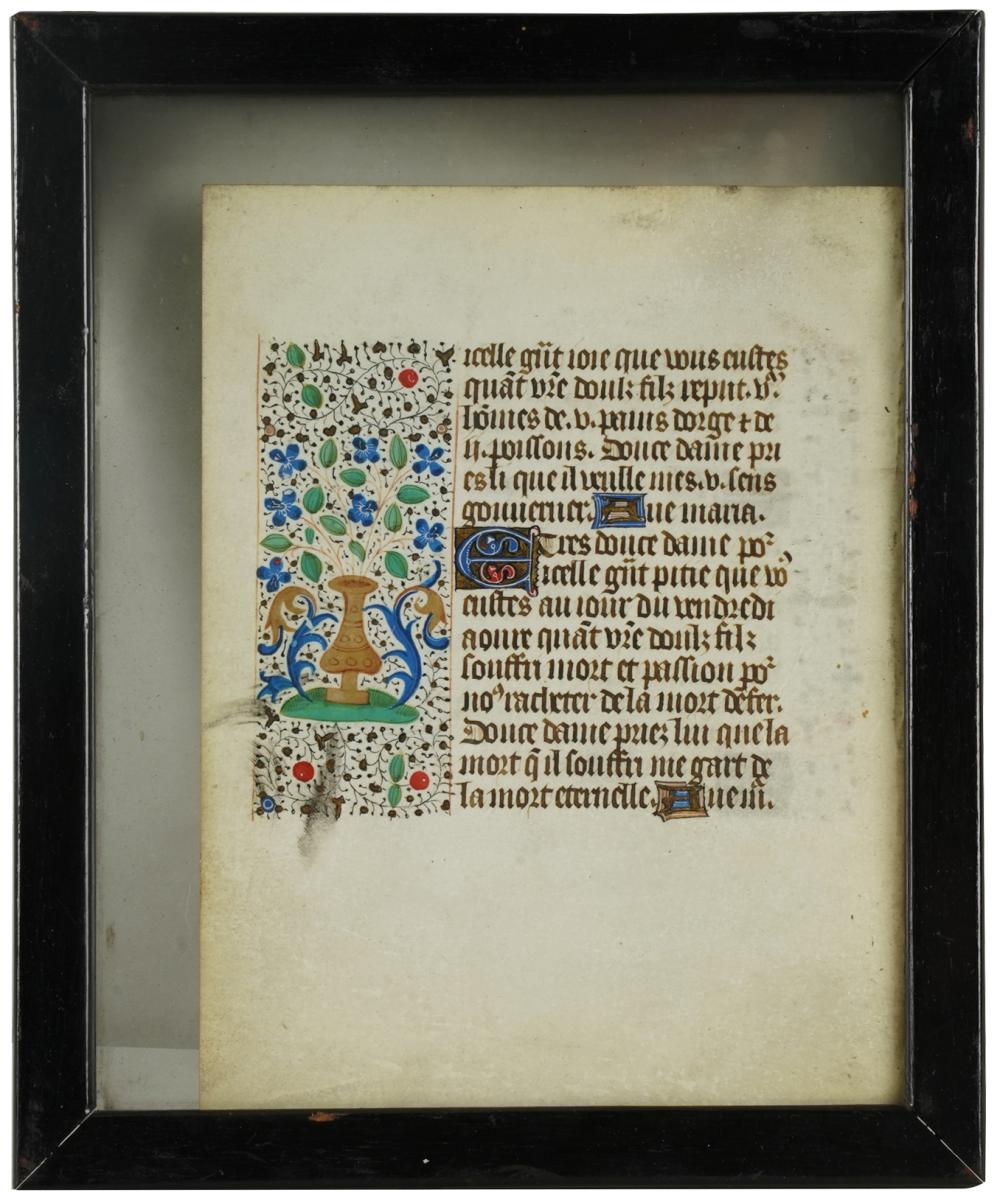 icelle gñt ioie que vous eustes
quãt vr̃e doulz filz reput .v.ᵐ
hõmes de .v. pains dorge ⁊ de
ii. poissons. Douce dam̃e pri
es li que il veulle mes .v. sens
gouuerner. Aue maria.
E tres douce dame poꝛ̉
icelle gñt pitie que vo⁹
eustes au iour du vendredi
aoure quãt vr̃e doulz filz
souffri mort et passion poꝛ̉
no⁹ racheter de la mort defer.
Douce dame priez lui que la
mort q̃ il souffri me gart de
la mort eternelle. Aue m̃.